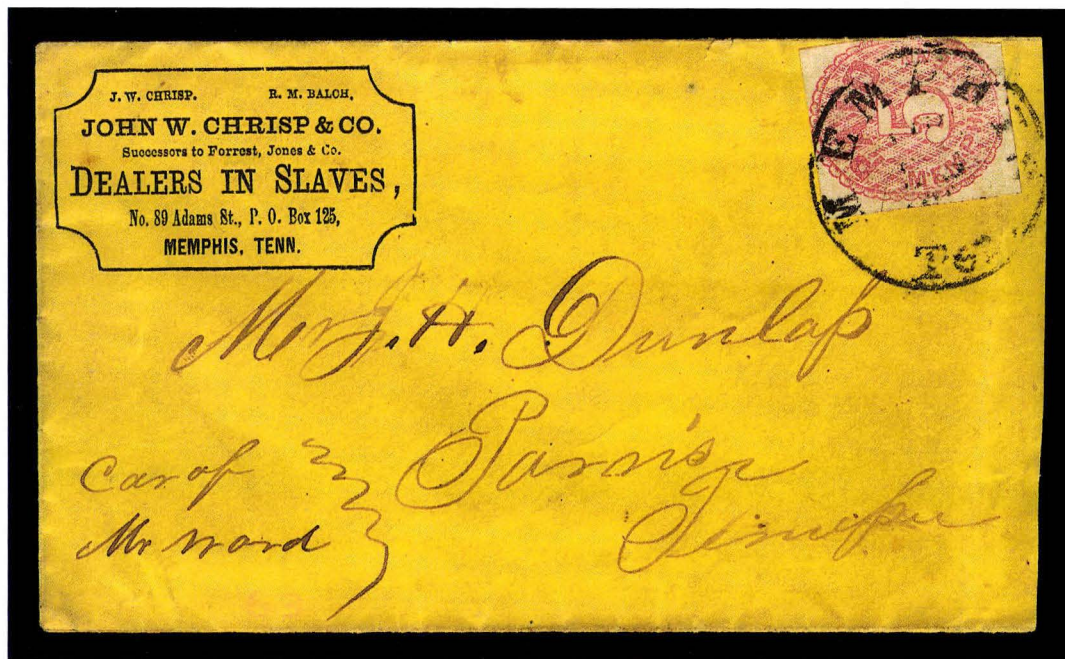 J. W. CHRISP. R. M. BALCH,
JOHN W. CHRISP & CO.
Successors to Forrest, Jones & Co.
DEALERS IN SLAVES,
No. 89 Adams St., P. O. Box 125,
MEMPHIS, TENN.
5
MEMPHIS
Mr J. H. Dunlap
Parris
Car of
Mr Ward